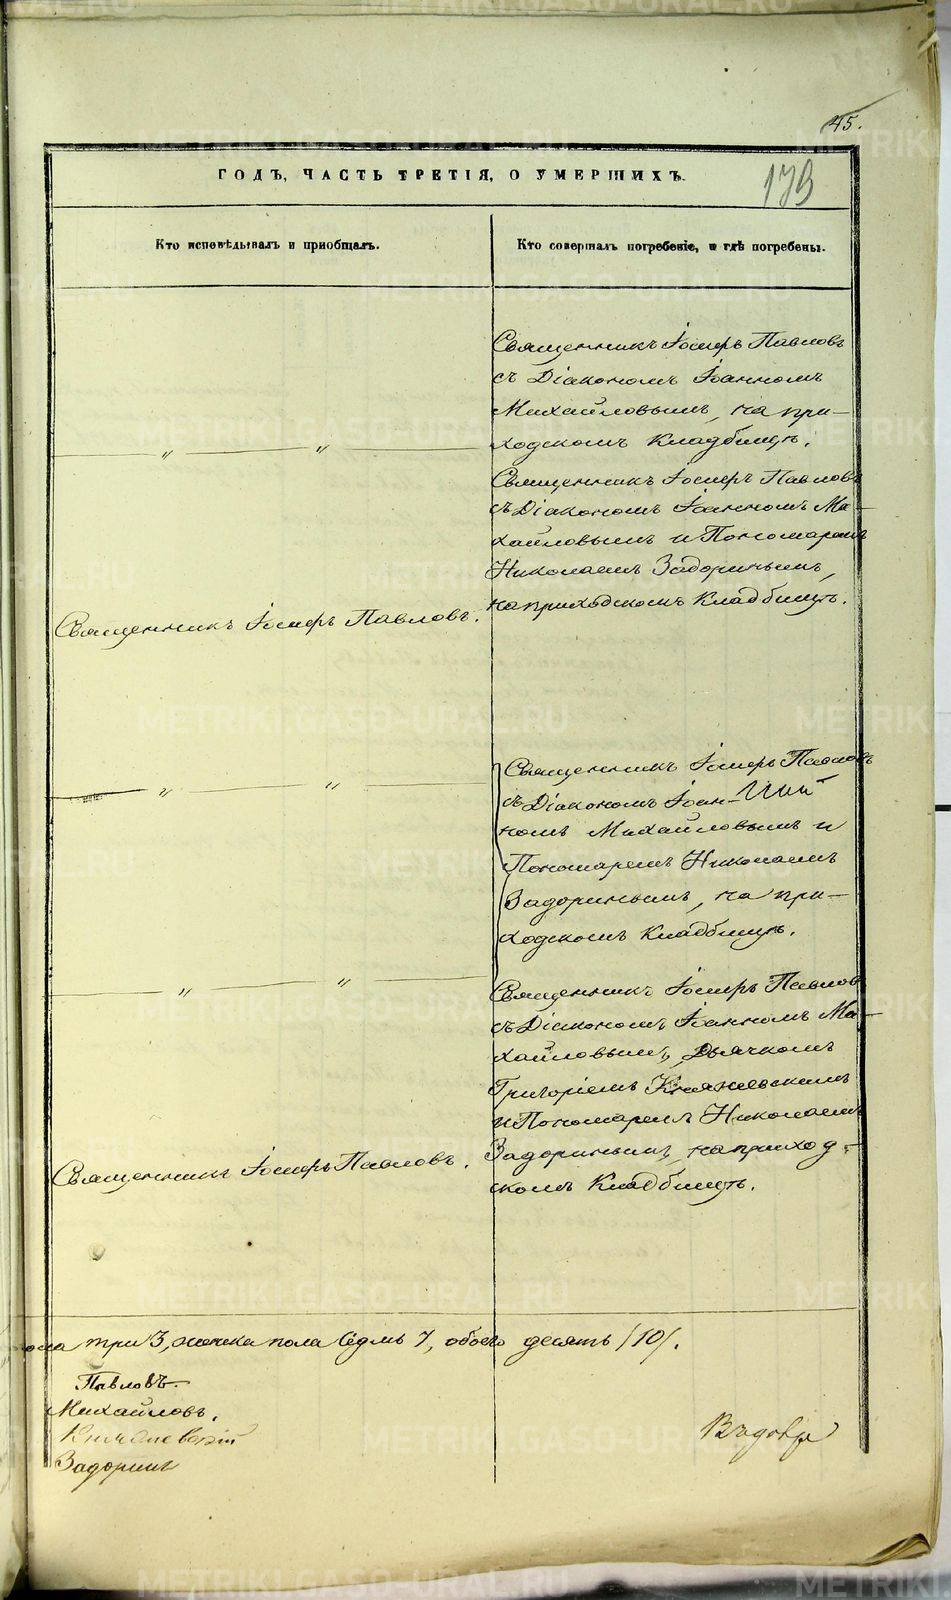 45.
ГОДЪ, ЧАСТЬ ТРЕТІЯ, О УМЕРШИХЪ.
179
Кто исповѣдывалъ и пріобщалъ.
Кто совершалъ погребеніе, и гдѣ погребены.
Священникъ Іосифъ Павловъ
съ Діакономъ Іоанномъ
Михайловымъ, на при-
ходскомъ Кладбищѣ.
" "
Священникъ Іосифъ Павловъ
съ Діакономъ Іоанномъ Ми-
хайловымъ и Пономаремъ
Николаемъ Задоринымъ,
на приходскомъ Кладбищѣ.
Священникъ Іосифъ Павловъ.
Священникъ Іосифъ Павловъ
съ Діакономъ Іоан-
номъ Михайловымъ и
Пономаремъ Николаемъ
Задоринымъ, на при-
ходскомъ Кладбищѣ.
" "
" "
Священникъ Іосифъ Павловъ
съ Діакономъ Іоанномъ Ми-
хайловымъ, Дьячкомъ
Григоріемъ Княжевскимъ
и Пономаремъ Николаемъ
Задоринымъ, на приход-
скомъ Кладбищѣ.
Священникъ Іосифъ Павловъ.
три 3, женска пола седмь 7, обоего десять /10/.
Павловъ
Михайловъ.
Княжевскій
Задоринъ
METRIKI.GASO-URAL.RU